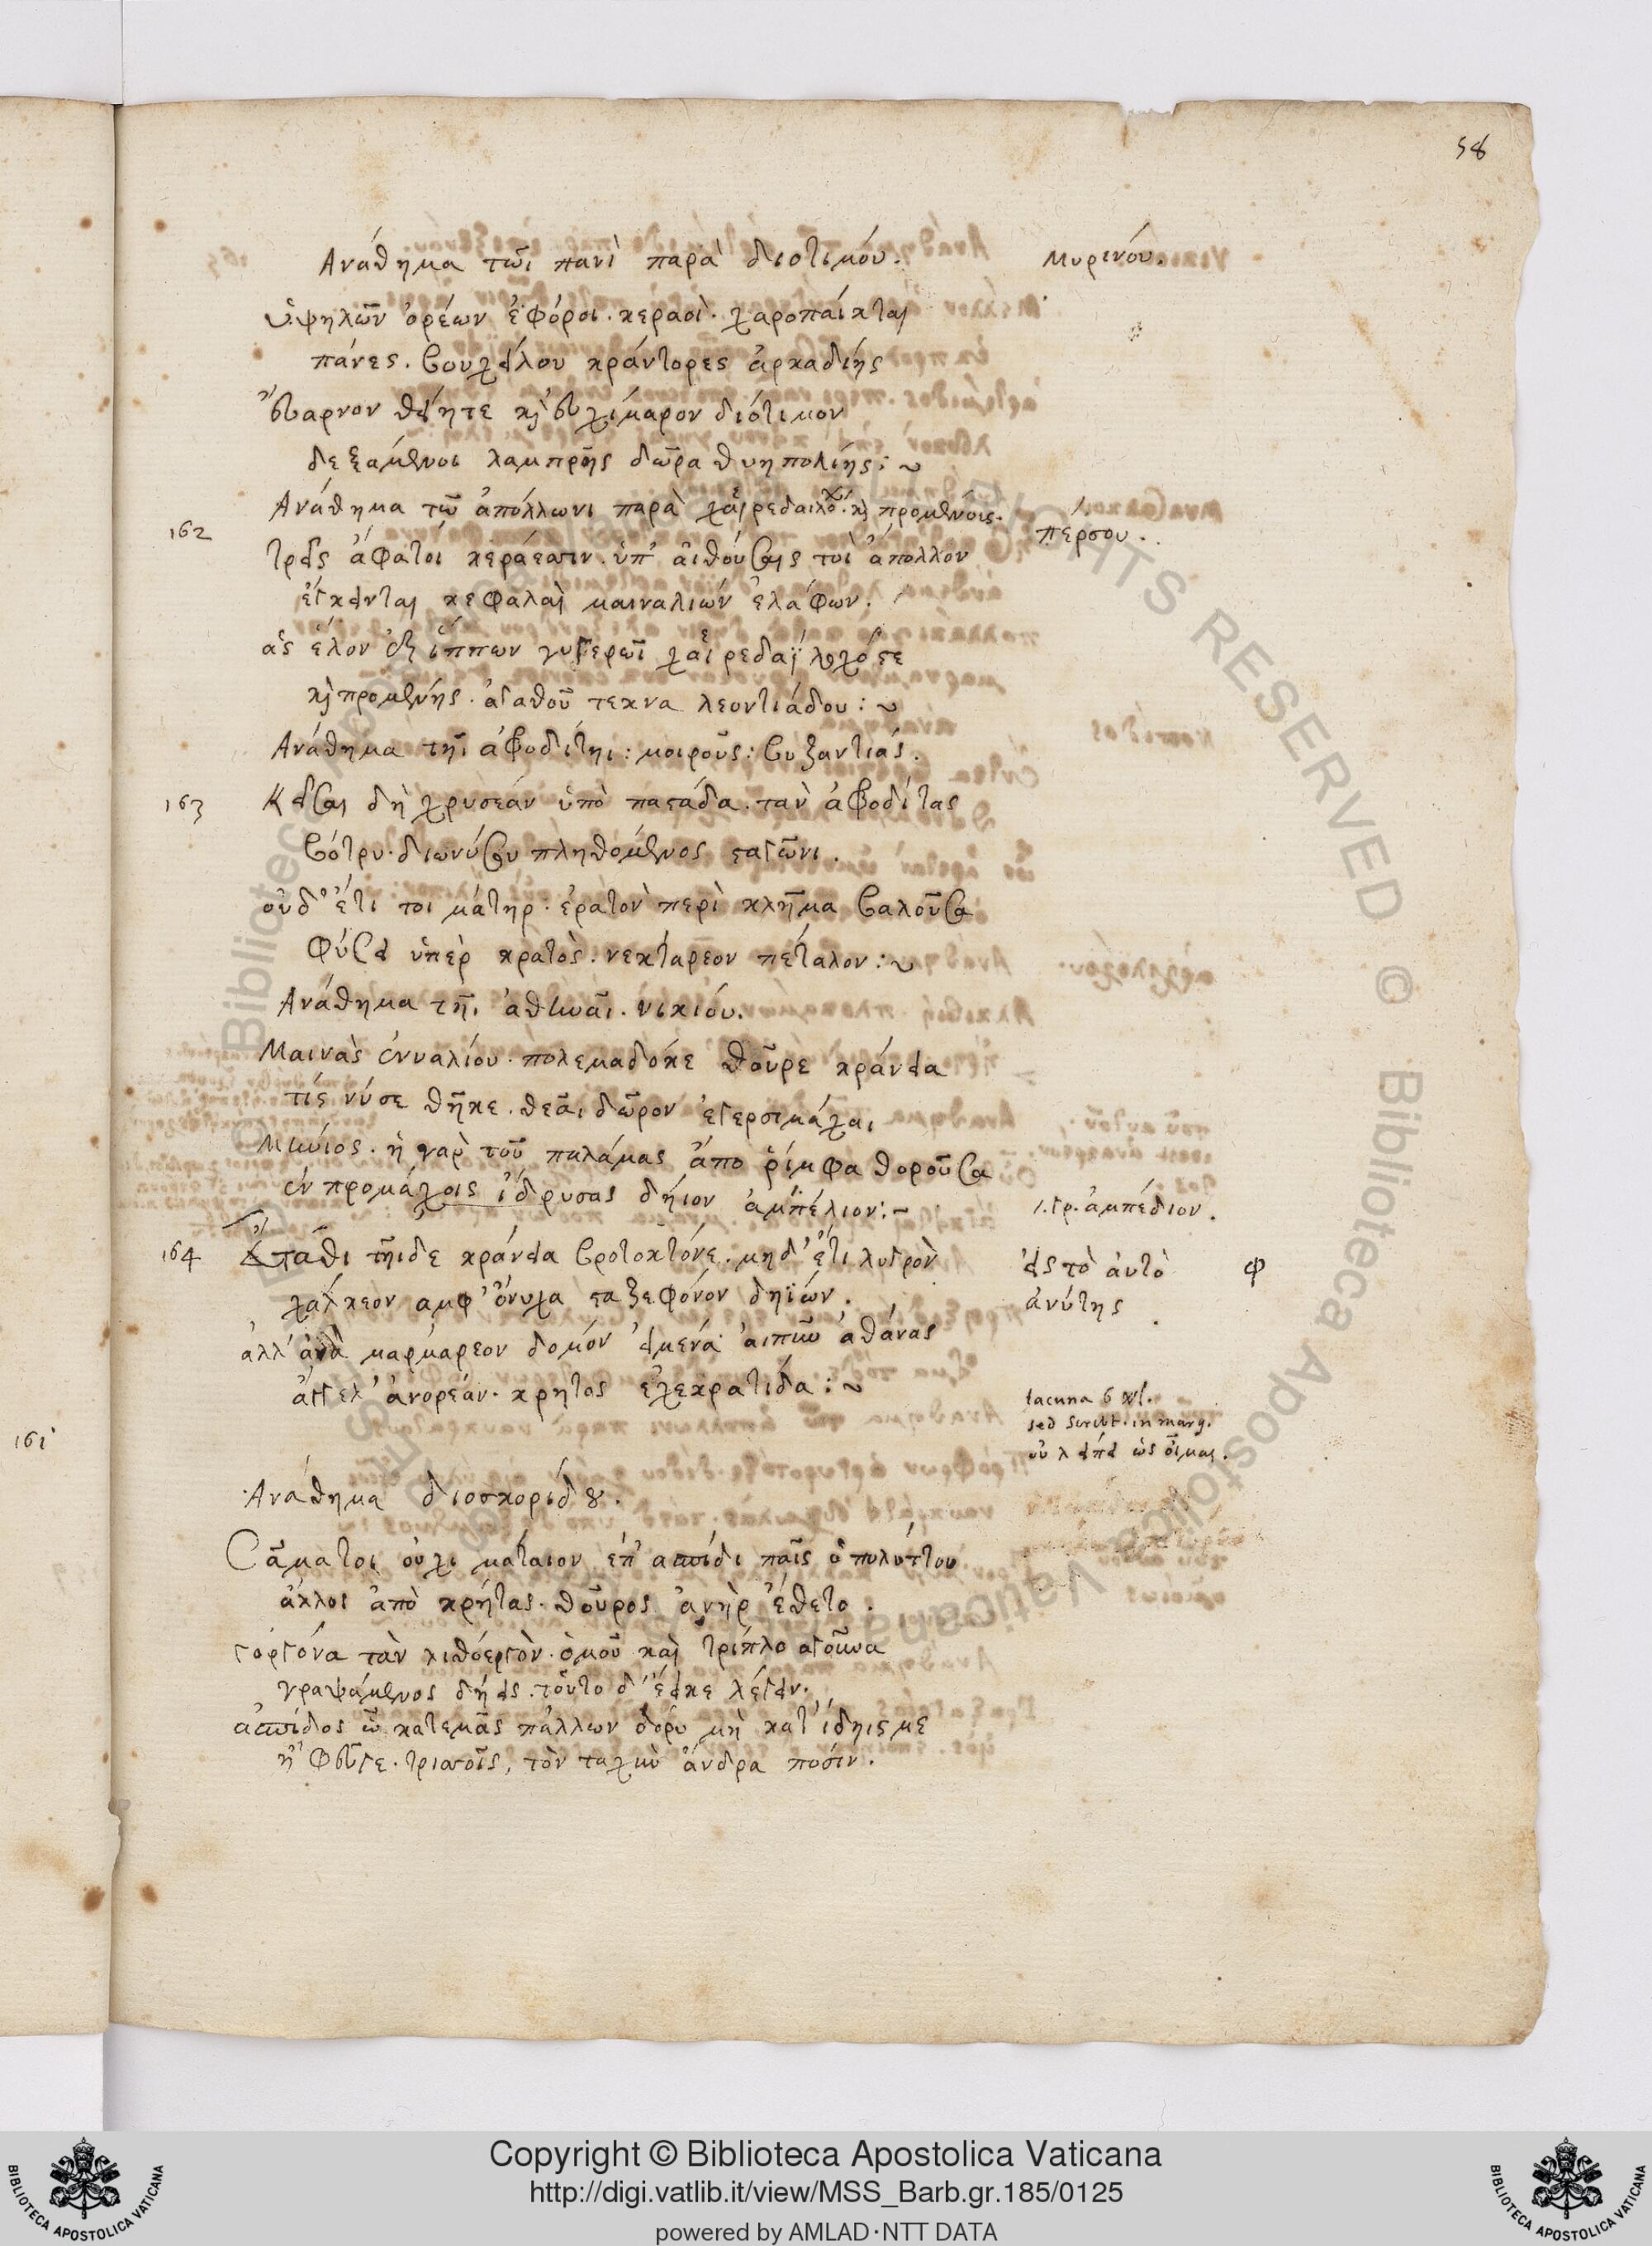 58
Ανάθημα τῶι πανὶ παρὰ διοτιμόυ. Μυρινόυ.
ὑψηλῶν ὀρέων ἐφόροι. κεραοὶ. χαροπαίκται
πάνες. βουχείλου κράντορες ἀρκαδίης
ἔυαρνον θείητε κὶ ἐυχίμαρον διότιμον
δεξαμενοι λαμπρῆς δῶρα θυηπολίης: ~
Ανάθημα τῶ ἀπόλλωνι παρὰ χαἱρεδαιλό. κὶ προμενόις.
162 πέρσου.
τρεῖς ἄφατοι κεράεσσιν. ὑπ' ἀιθούσαις τοὶ ἄπολλον
ἐγκεινται κεφαλαὶ μαιναλιών ἐλάφων.
ἁς ἕλον ἐξ ἵππων γυγερῶι χαἱρεδαϊλοχόςτε
κὶ προμενής. ἀγαθοῦ τεκνα λεοντιάδου: ~
Ανάθημα τῆι ἀφροδίτηι: μοιροῦς: βυζαντιάς.
163 Κεῖσαι δὴ χρυσεάν ὑπὸ παςάδα. τὰν ἀφροδίτας
βότρυ. διωνύσου πληθόμενος ςαγῶνι.
οὐδ' ἔτι τοι μάτηρ. ἐρατὸν περὶ κλῆμα βαλοῦσα
φύσει ὑπὲρ κρατὸς. νεκτάρεον πέταλον: ~
Ανάθημα τῆι ἀθηνᾶι. νικίου.
Μαινὰς ἐνυαλίου. πολεμαδόκε θοῦρε κράνεια
τίς νύ σε θῆκε. θεᾶι δῶρον ἐγερσιμάχαι
Μήνιος. ἡ γαρ τοῦ παλάμας ἄπο ῥίμφα θοροῦσα
ἐν προμάχοις ἰδρυσας δήιον ἀμπέλιον: ~ γρ. ἀμπέδιον.
164 Ἕσταθι τῆιδε κράνεια βροτοκτόνε. μηδ' ἔτι λυγρὸν εἰς τὸ ἀυτὸ φ
χάλκεον αμφ' ὄνυχα ςαζεφόνον δηΐων. ἀνύτης.
ἀλλ' ἀνὰ μαρμάρεον δομόν εἱμενά αἰπὺν ἀθάνας
ἄγγελ' ἀνορέαν. κρητὸς ἐχεκρατίδα: ~
lacuna 6 vs.
sed scribit. in marg.
οὐ λείπει ὡς οἶμαι.
161
Ανάθημα διοσκορίδου.
Σᾶμα τοι οὐχι μάταιον ἐπ' ασπίδι παῖς ὁ πολύττου
ὕλλος ἀπὸ κρήτας. θοῦρος ἀνὴρ ἔθετο.
γοργόνα τὰν λιθόεργὸν. ὁμοῦ καὶ τρίπλο αγοῦνα
γραψάμενος δήεις. τοῦτο δ' ἔεικε λέγειν.
ασπίδος ὦ κατεμᾶς πάλλων δόρυ μὴ κατ' ίδηις με
ἢ φεῦγε. τρισσοῖς, τὸν ταχὺν ἄνδρα ποσίν.
Copyright © Biblioteca Apostolica Vaticana
http://digi.vatlib.it/view/MSS_Barb.gr.185/0125
powered by AMLAD·NTT DATA
BIBLIOTECA APOSTOLICA VATICANA
BIBLIOTECA APOSTOLICA VATICANA